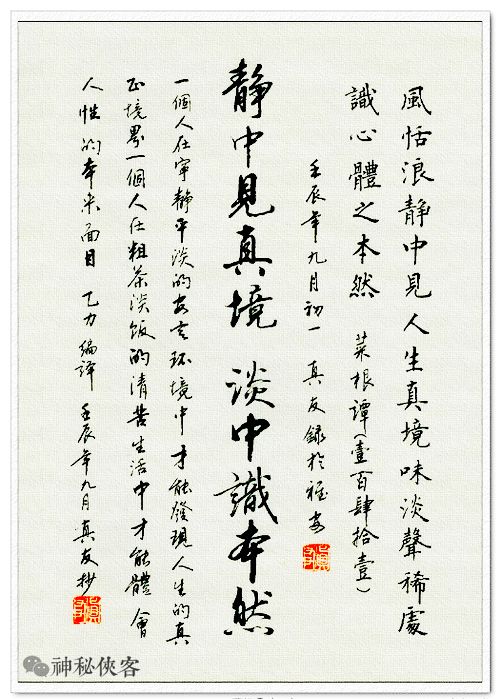 風恬浪靜中見人生真境味淡聲稀處
識心體之本然 菜根譚(壹百肆拾壹)
壬辰年九月初一 真友録於雅安
静中見真境 淡中識本然
一個人在寧静平淡的安定环境中才能發現人生的真
正境界一個人在粗茶淡饭的清苦生活中才能體會
人性的本来面目 乙力編譯 壬辰年九月真友抄
神秘俠客